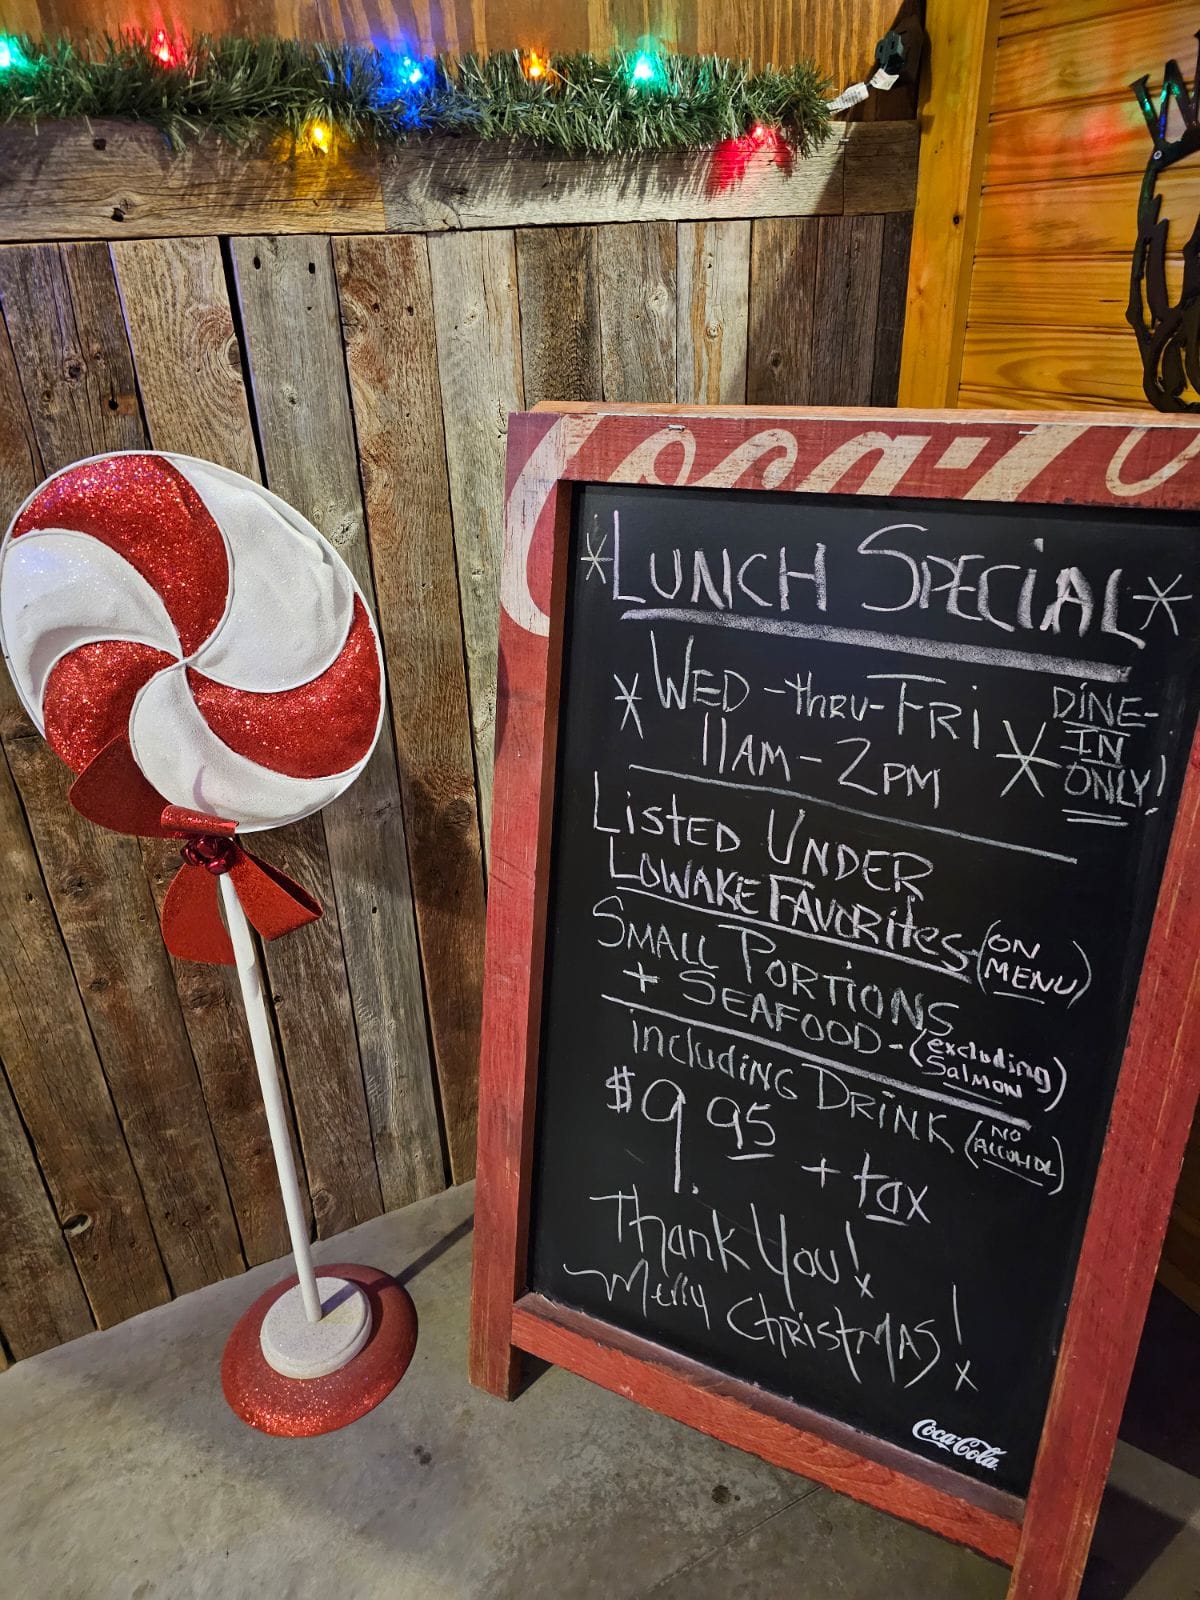 Coca-Co
*LUNCH SPECIAL*
*WED -thru- FRI
11AM - 2PM *
DINE-
IN
ONLY!
LISTED UNDER
LOWAKE FAVORITES - (ON MENU)
SMALL PORTIONS
+ SEAFOOD - (excluding SALMON)
including DRINK (NO ALCOHOL)
$9.95 + tax
Thank You!
Merry Christmas!
Coca-Cola